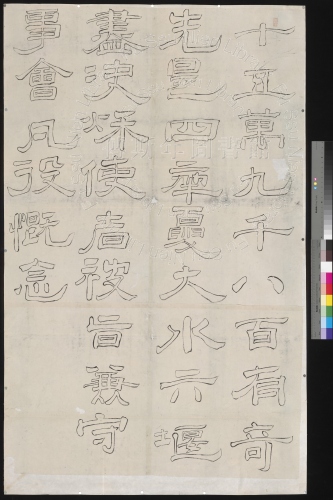 十五萬九千八百有奇
先是四年夏大水六堰
盡決秋使者被旨兼守
事會凡役慨念